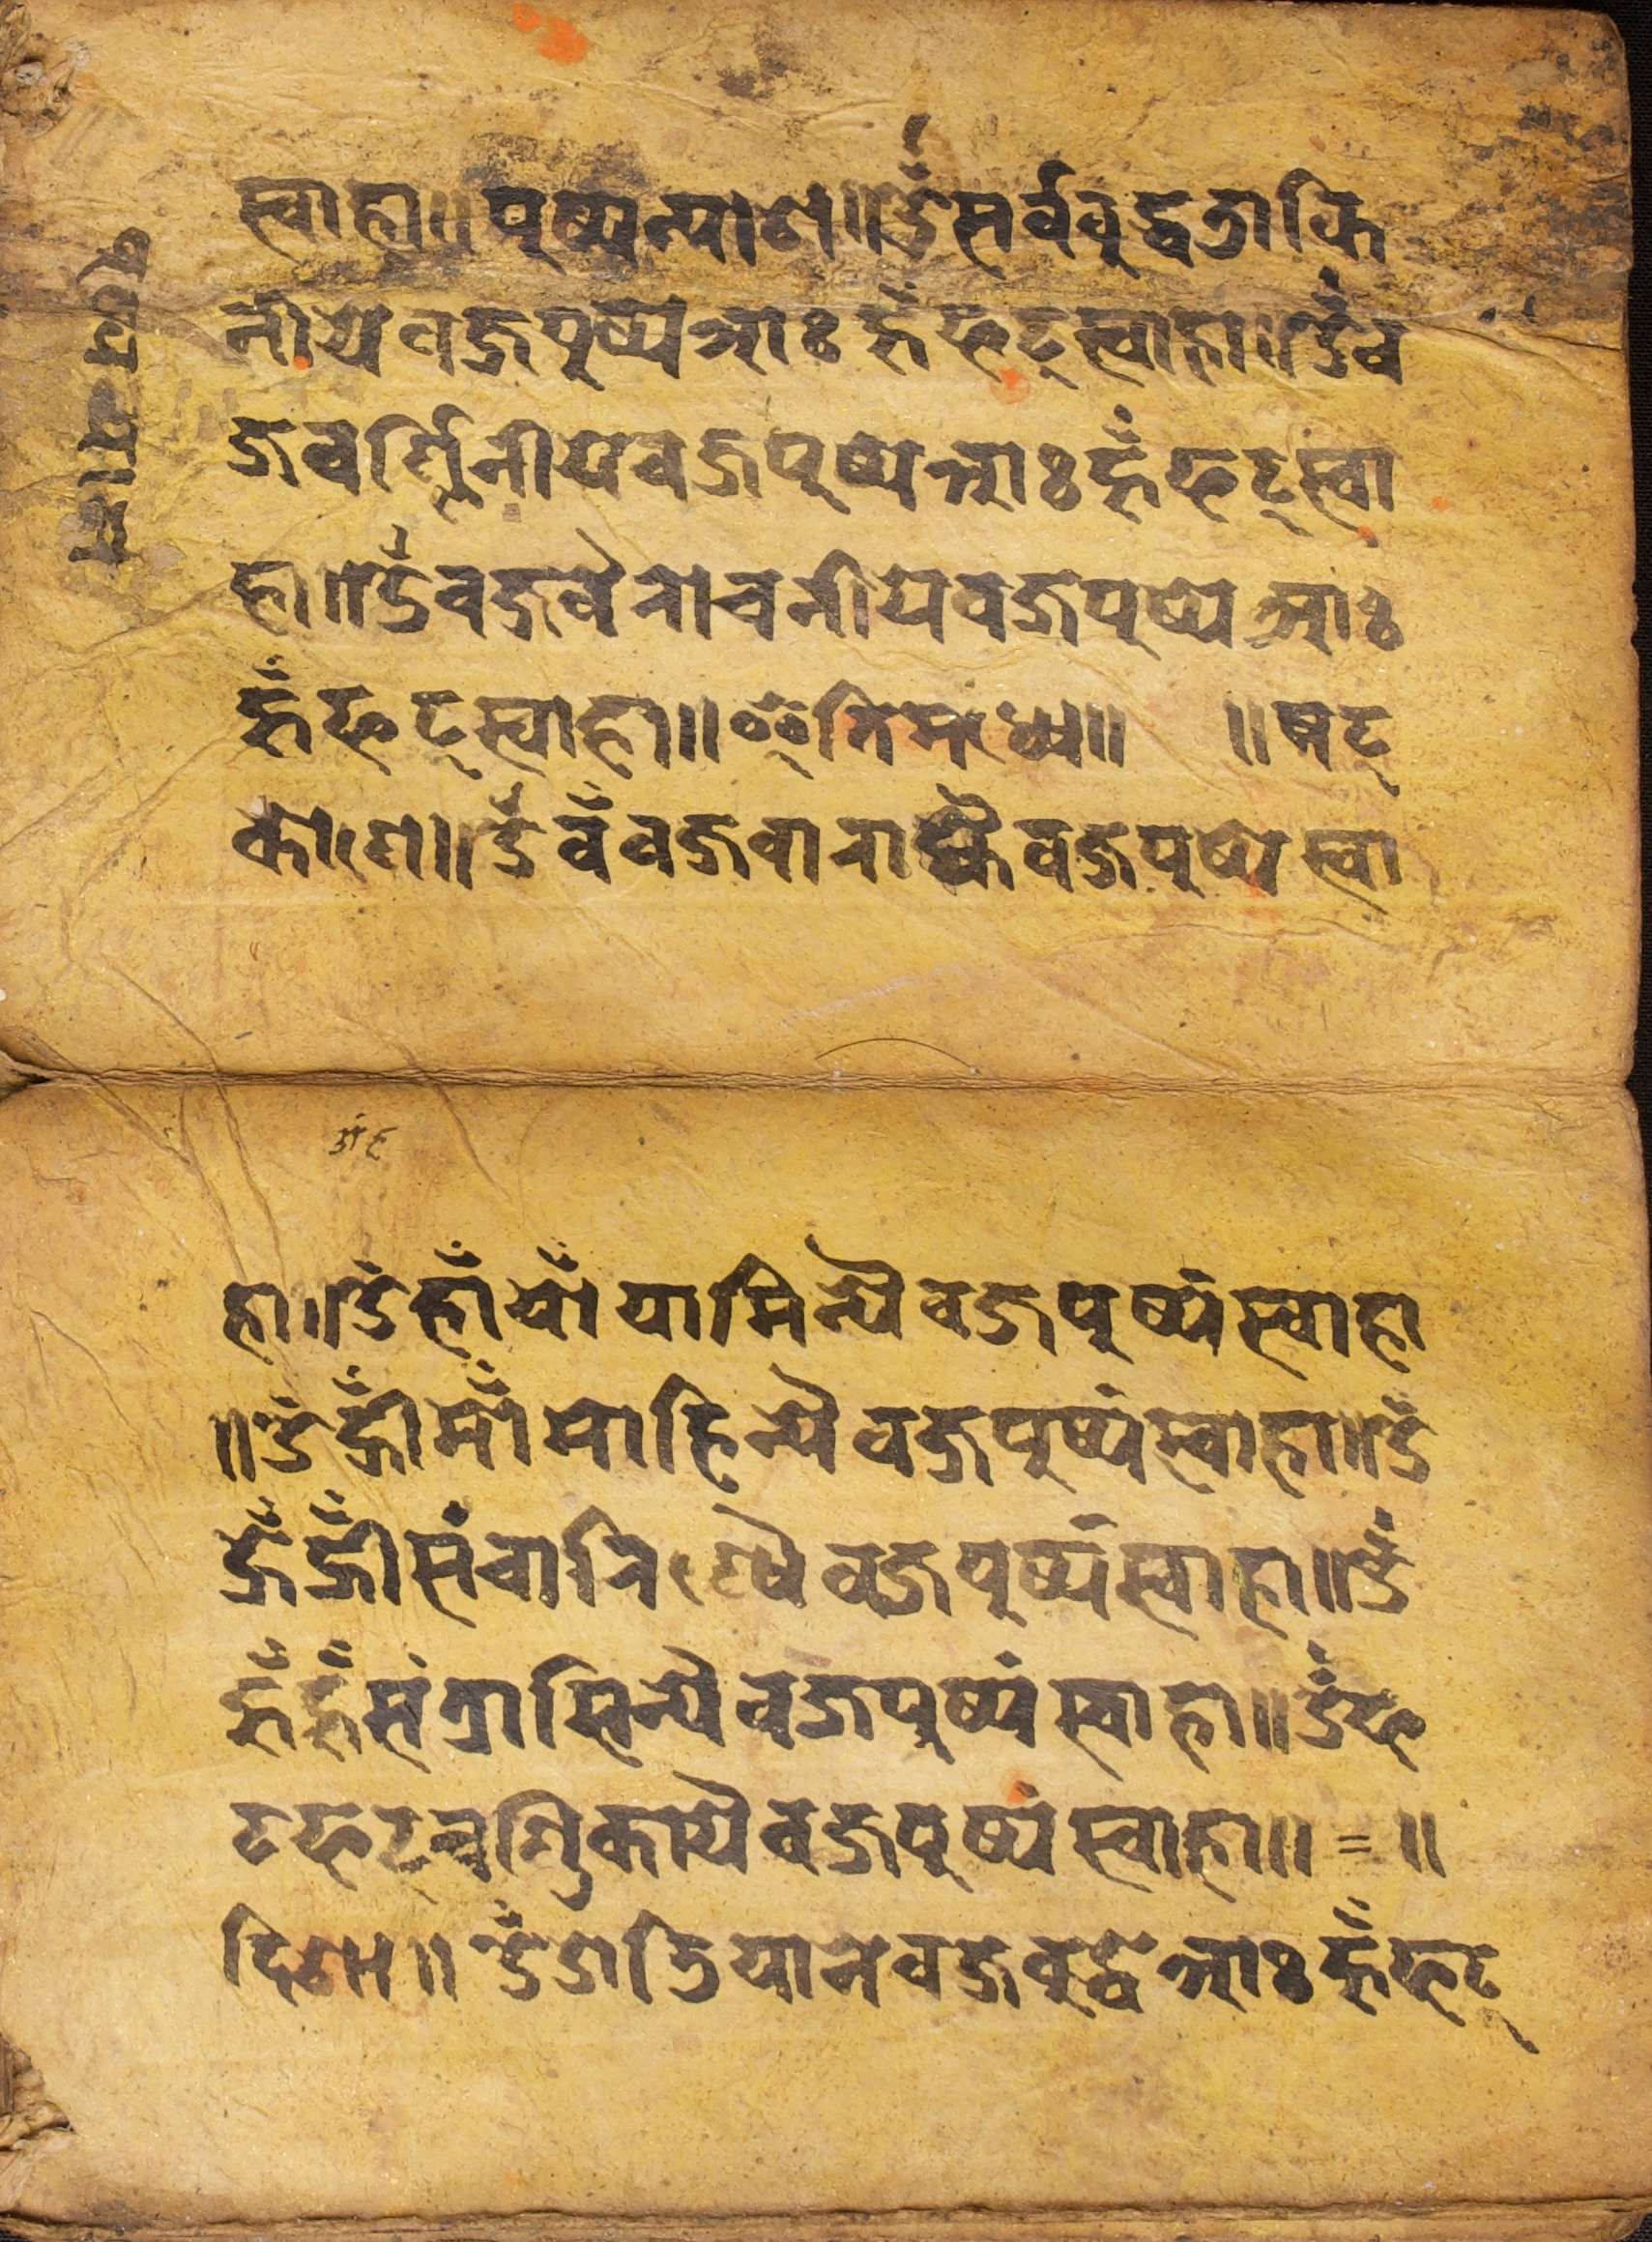 स्वाहा॥पुष्पन्याश॥ॐसर्वबुद्धडाकि
नीयवज्रपुष्पआः हूँ फट्स्वाहा॥ॐव
ज्रवर्णुनीयवज्रपुष्पआः हूँ फट्स्वा
हा॥ॐवज्रवैरोचनीयवज्रपुष्पआः
हूँ फट्स्वाहा॥इतिमध्य॥ ॥षट्
कोणे॥ॐवँवज्रवाराह्यैवज्रपुष्पस्वा
हा॥ॐहाँयोँयामिन्यैवज्रपुष्पंस्वाहा
॥ॐह्रीँमोँमोहिन्यैवज्रपुष्पंस्वाहा॥ॐ
ह्रेँह्रीँसंचारिण्यैवज्रपुष्पंस्वाहा॥ॐ
हूँहूँसंत्रासिन्यैवज्रपुष्पंस्वाहा॥ॐफ
टफट्चण्डिकायैवज्रपुष्पंस्वाहा॥ = ॥
दिशा॥ ॐओडियानेवज्रबुद्धेआः हूँ फट्